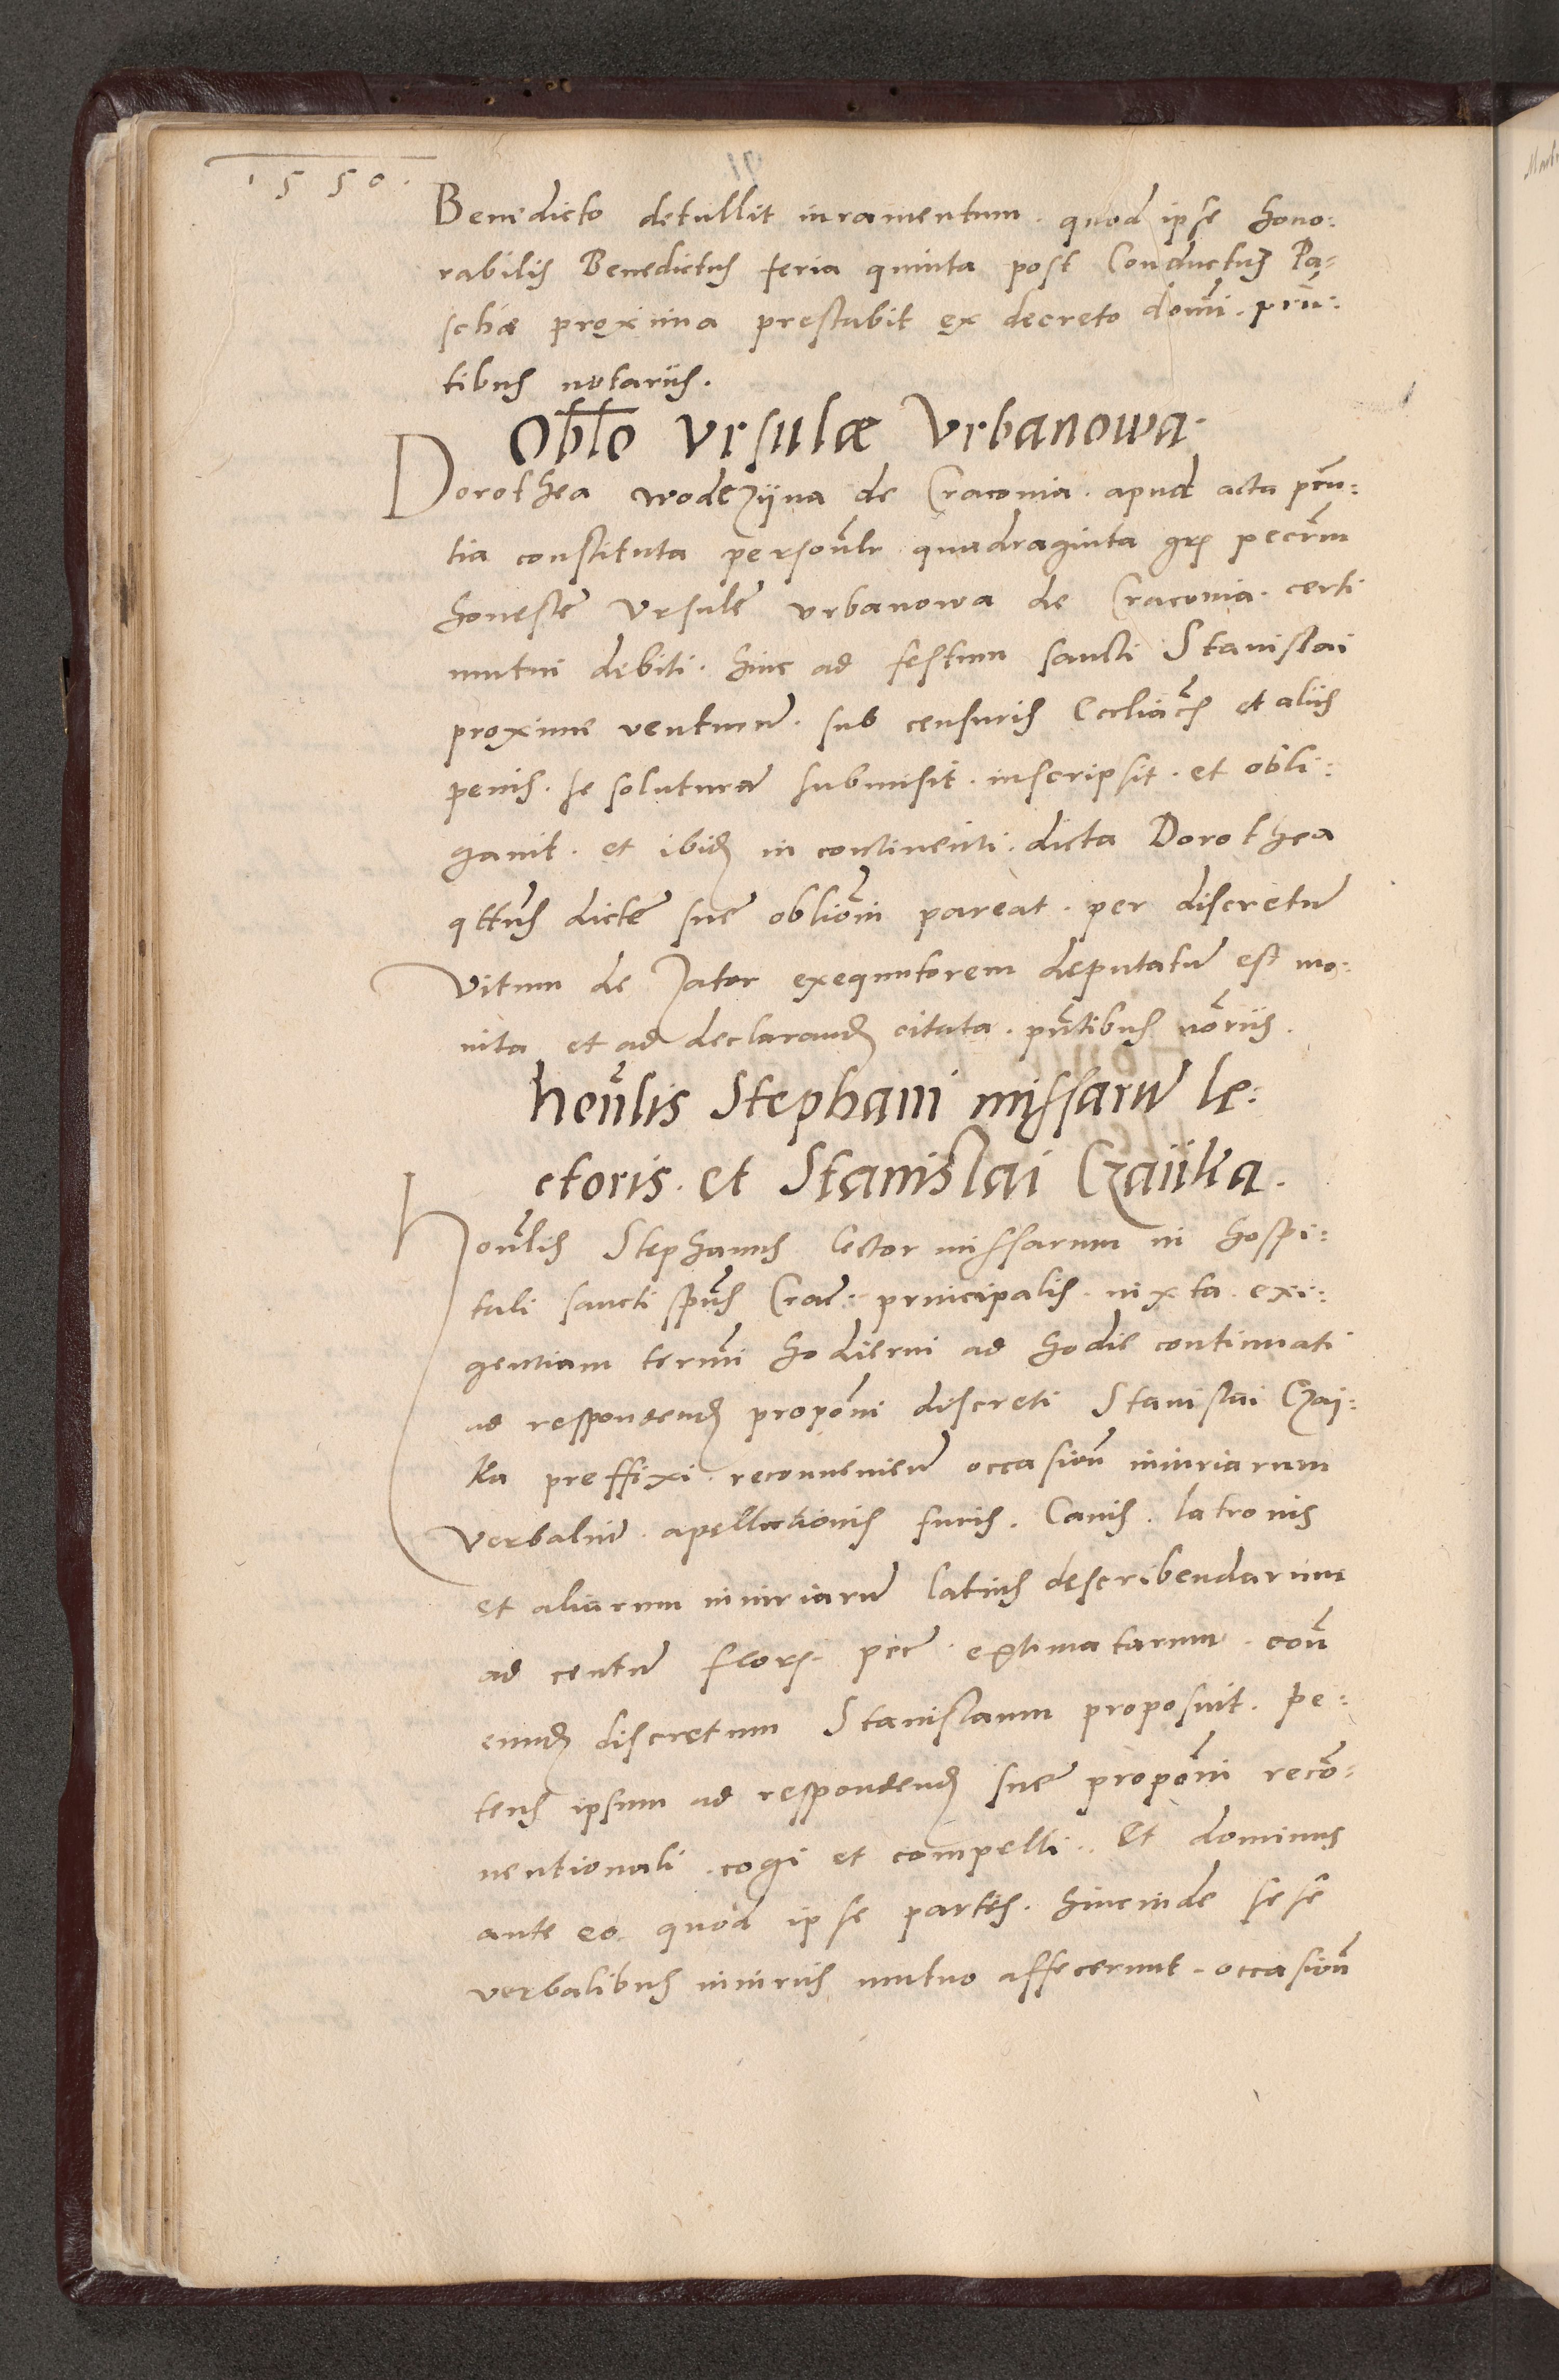 1550.
Benedicto detullit iuramentum. quod ipse hono:
rabilis Benedictus feria quinta post Conductus Pa:
schæ proxima prestabit ex decreto domĩ. prñ:
tibus notariis.
Obłło Vrsulæ Vrbanowa.
Dorothea wodeziyna de Cracouia. apud acta pñ:
tia constituta personlr quadraginta grs pecrm
honestę Vrsulę vrbanowa de Cracouia. certi
mutui debiti. hinc ad festum sancti Stanislai
proxime ventuꝝ. sub censuris Eccliacs et aliis
penis. se soluturã submisit. inscripsit. et obli:
gauit. et ibidꝫ in continenti. dicta Dorothea
qttus dictę suę obliõni pareat. per discretũ
Vitum de Zator exequutorem deputatũ est mo:
nita et ad declarandꝫ citata. pñtibus nõriis.
honlis Stephani missarũ le:
ctoris. et Stanislai Czaiika.
Honlis Stephanus lector missarum in hospi:
tali sancti spũs Crač. principalis. iuxta. exi:
gentiam termi hodierni ad hodie continuati
ad respondendꝫ propõni discreti Stanislai Czai:
ka preffixi. reconueniẽ occasioñ iniuriarum
verbaliũ. apellationis furis. Canis. latronis
et aliarum iniuriarũ latius describendarum
ad centũ flors. peč. extimatarum. coñ
eundꝫ discretum Stanislaum proposuit. Pe:
tens ipsum ad respondendꝫ suę propõni recõ:
uentionali. cogi et compelli. Et dominus
ante eo. quod ipse partes. hincinde sese
verbalibus iniuriis mutuo affecerunt. occasioñ